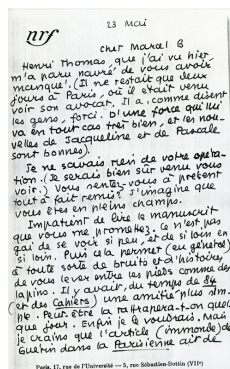 23 Mai
nrf
cher Marcel B
Henri Thomas, que j'ai vu hier,
m'a paru navré de vous avoir
manqué. (Il ne restait que deux
jours à Paris, où il était venu
voir son avocat. Il a, comme disent
les gens, forci. D'une force qui lui
va en tout cas très bien, et les nou-
velles de Jacqueline et de Pascale
sont bonnes).
Je ne savais rien de votre opéra-
tion. (Je serais bien sûr venu vous
voir.) Vous sentez-vous à présent
tout à fait remis? J'imagine que
vous êtes en pleins champs.
Impatient de lire le manuscrit
que vous me promettez. Ce n'est pas
gai de se voir si peu, et de si loin en
si loin. Puis cela permet (en général)
à toute sorte de bruits et d'histoires,
de vous lever entre les pieds comme des
lapins. Il y avait, du temps de 84
(et des Cahiers) une amitié plus sim-
ple. Peut-être la rattrapera-t-on quel-
que jour. Enfin je le voudrais. Mais
je crains que l'article (immonde) de
Guérin dans la Parisienne ait de
Paris, 17, rue de l'Université — 5, rue Sébastien-Bottin (VIIe)